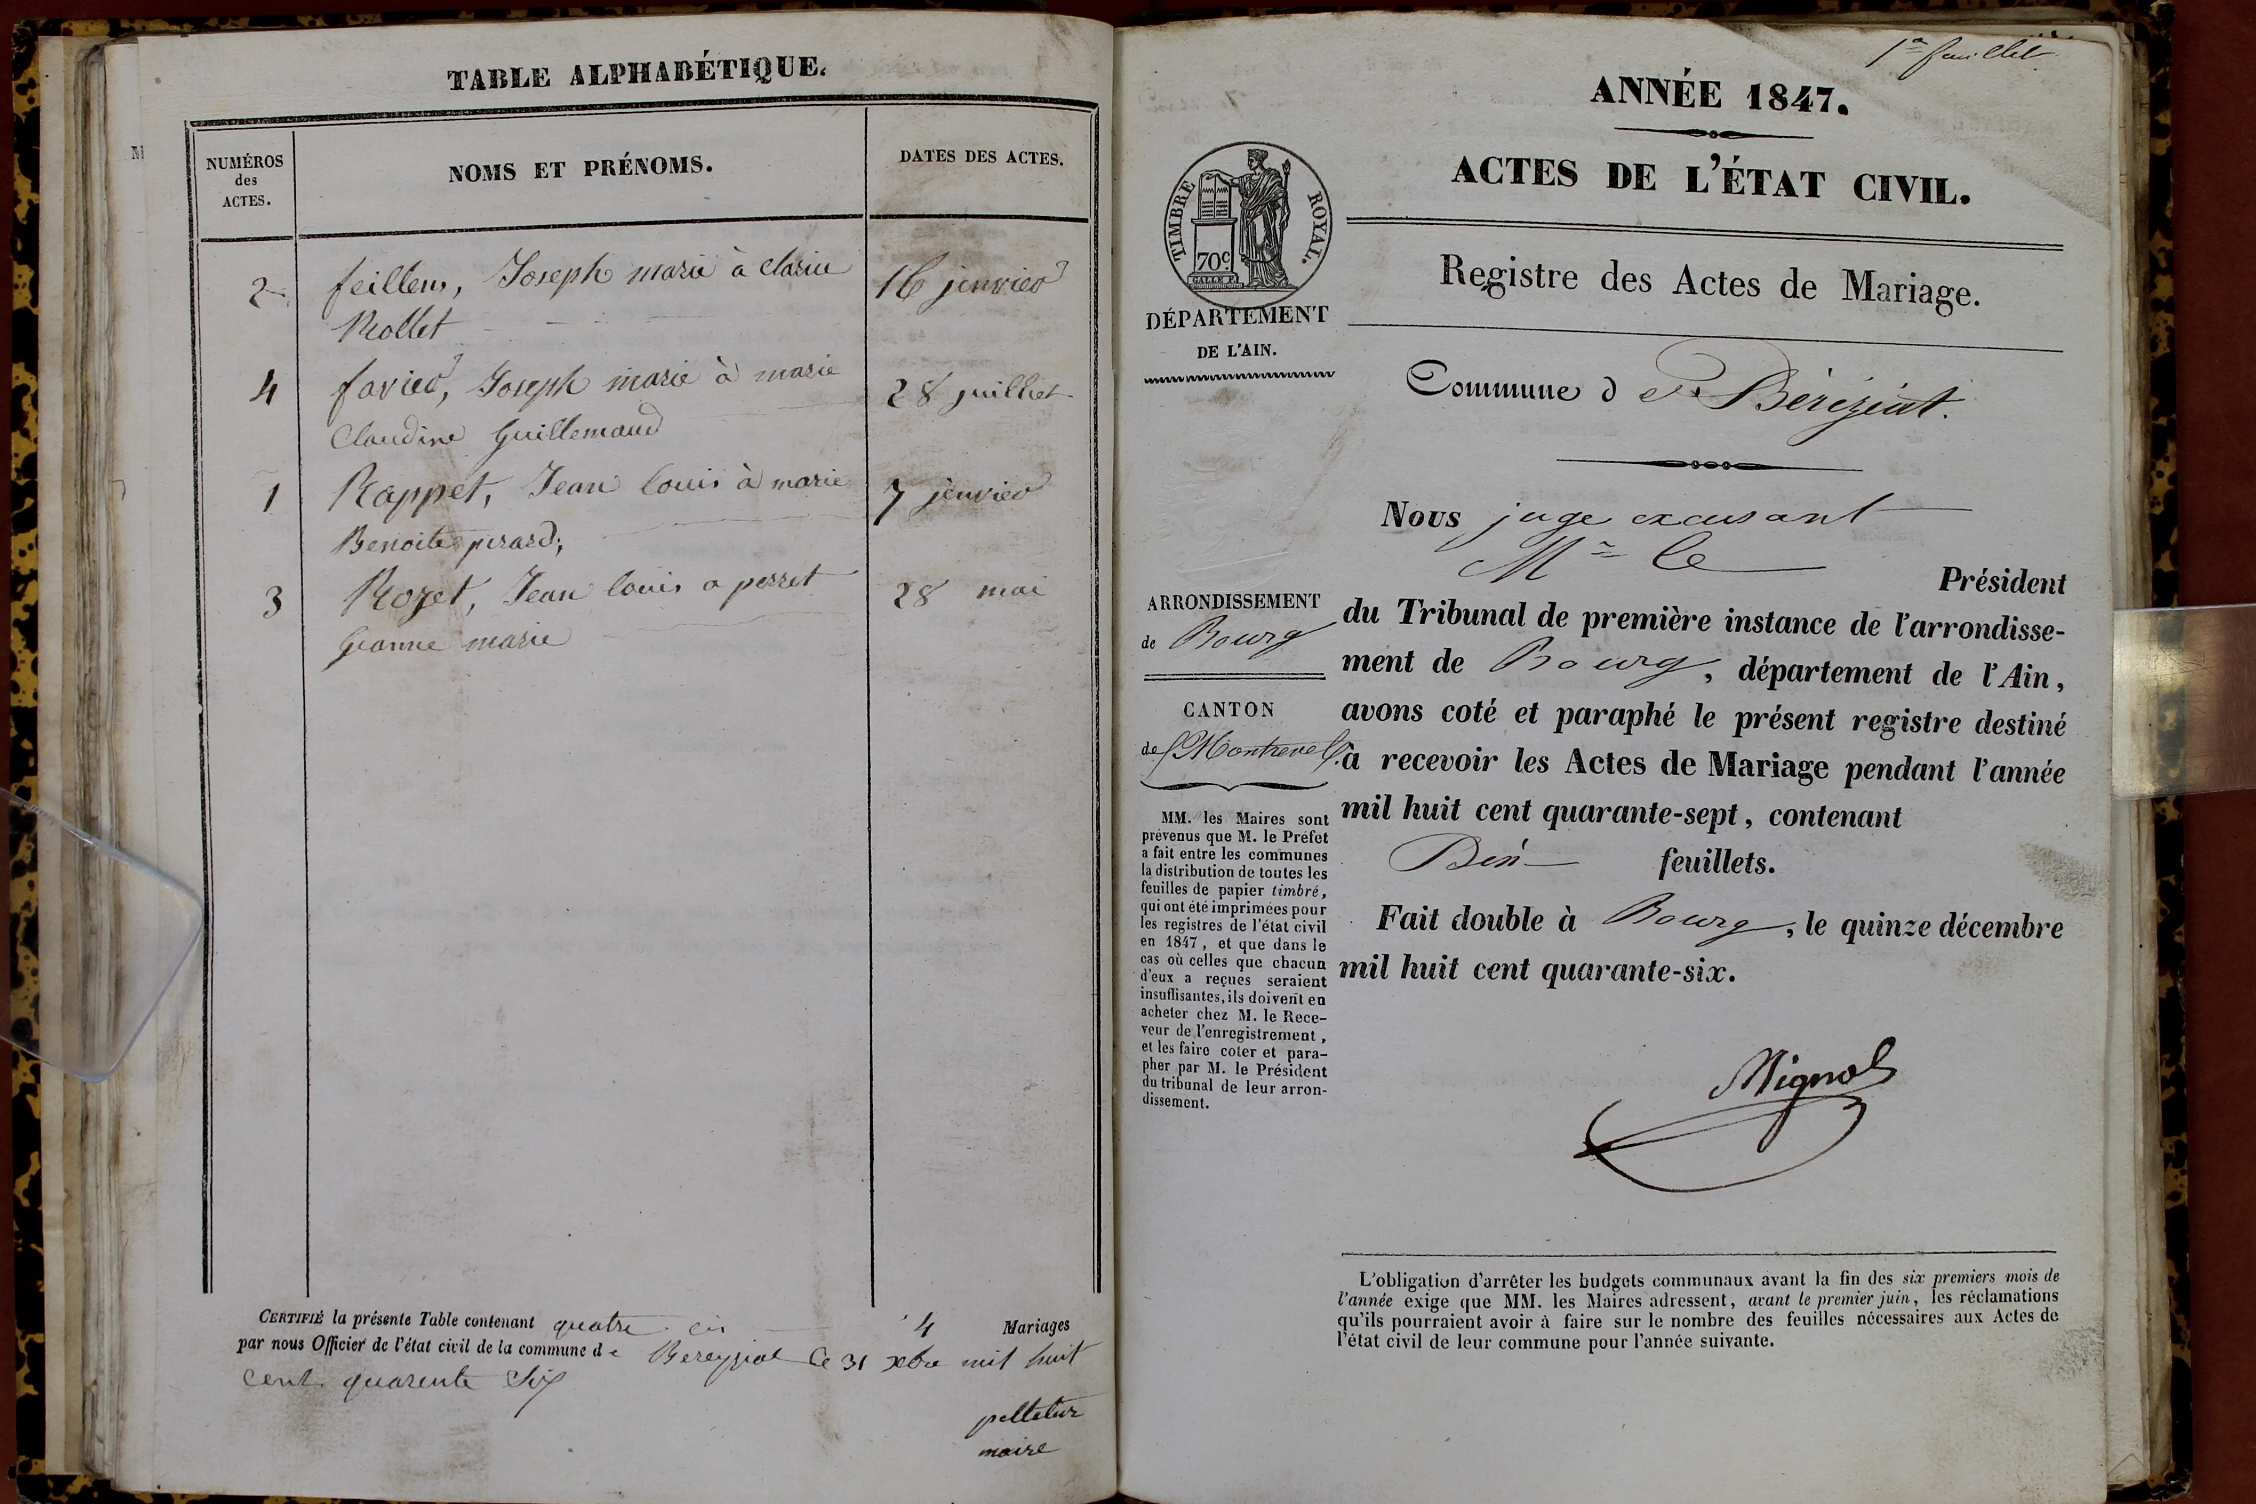 TABLE ALPHABÉTIQUE.
NUMÉROS
des
ACTES.
NOMS ET PRÉNOMS.
DATES DES ACTES.
2 feillens, Joseph marie à clarice 16 jenvier
Rollet
4 favier, Joseph marie à marie 28 juilliet
Claudine Guillemaud
1 Rappet, Jean louis à marie 7 jenvier
Benoite pirard;
3 Rozet, Jean louis a perret 28 mai
Jeanne marie
CERTIFIÉ la présente Table contenant quatre 4 Mariages
par nous Officier de l'état civil de la commune de Bereyziat le 31 xbre mil huit
cent quarente Six
pelletier
maire
1er feuillet
ANNÉE 1847.
ACTES DE L'ÉTAT CIVIL.
TIMBRE ROYAL.
70c
DÉPARTEMENT
DE L'AIN.
Registre des Actes de Mariage.
Commune de Béréziat.
Nous juge excusant
Mr le
Président
du Tribunal de première instance de l'arrondisse-
ment de Bourg, département de l'Ain,
avons coté et paraphé le présent registre destiné
à recevoir les Actes de Mariage pendant l'année
mil huit cent quarante-sept, contenant
feuillets.
Fait double à Bourg, le quinze décembre
mil huit cent quarante-six.
Mignot
ARRONDISSEMENT
de Bourg
CANTON
de Montrevel
MM. les Maires sont
prévenus que M. le Préfet
a fait entre les communes
la distribution de toutes les
feuilles de papier timbré,
qui ont été imprimées pour
les registres de l'état civil
en 1847, et que dans le
cas où celles que chacun
d'eux a reçues seraient
insuffisantes, ils doivent en
acheter chez M. le Rece-
veur de l'enregistrement,
et les faire coter et para-
pher par M. le Président
du tribunal de leur arron-
dissement.
L'obligation d'arrêter les budgets communaux avant la fin des six premiers mois de
l'année exige que MM. les Maires adressent, avant le premier juin, les réclamations
qu'ils pourraient avoir à faire sur le nombre des feuilles nécessaires aux Actes de
l'état civil de leur commune pour l'année suivante.